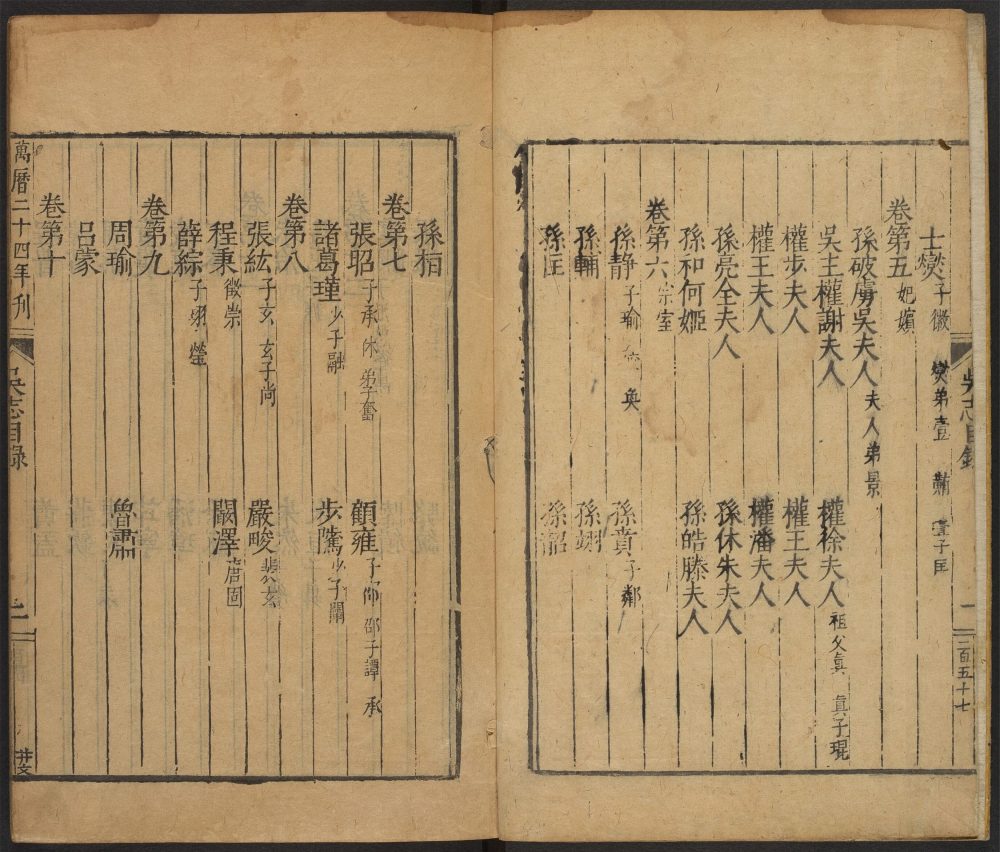 士燮子徽 燮弟壹 䵋 壹子匡
卷第五妃嬪
孫破虜吳夫人夫人弟景
吳主權謝夫人 權徐夫人祖父真 真子琨
權步夫人 權王夫人
權王夫人 權潘夫人
孫亮全夫人 孫休朱夫人
孫和何姬 孫皓滕夫人
卷第六宗室
孫靜子瑜 奐 孫賁子鄰
孫輔 孫翊
孫匡 孫韶
吳志目錄 一 一百五十七
孫桓
卷第七
張昭子承 休 弟子奮 顧雍子卲 邵子譚 承
諸葛瑾少子融 步騭少子闡
卷第八
張紘子玄 玄子尚 嚴畯裴玄
程秉徵崇 闞澤唐固
薛綜子珝 瑩
卷第九
周瑜 魯肅
呂蒙
卷第十
萬曆二十四年刊 吳志目錄